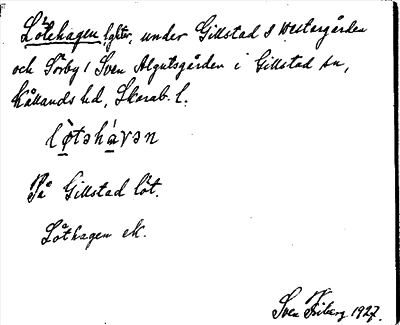 Lötehagen, lghtr, under Gillstad 8 Westergården
och Sörby 1 Sven Algutsgården i Gillstad sn,
Kållands hd, Skarab. l.
lø̀təhá̱vən
På Gillstad löt.
Löthagen eK.
Sven Friberg 1927.